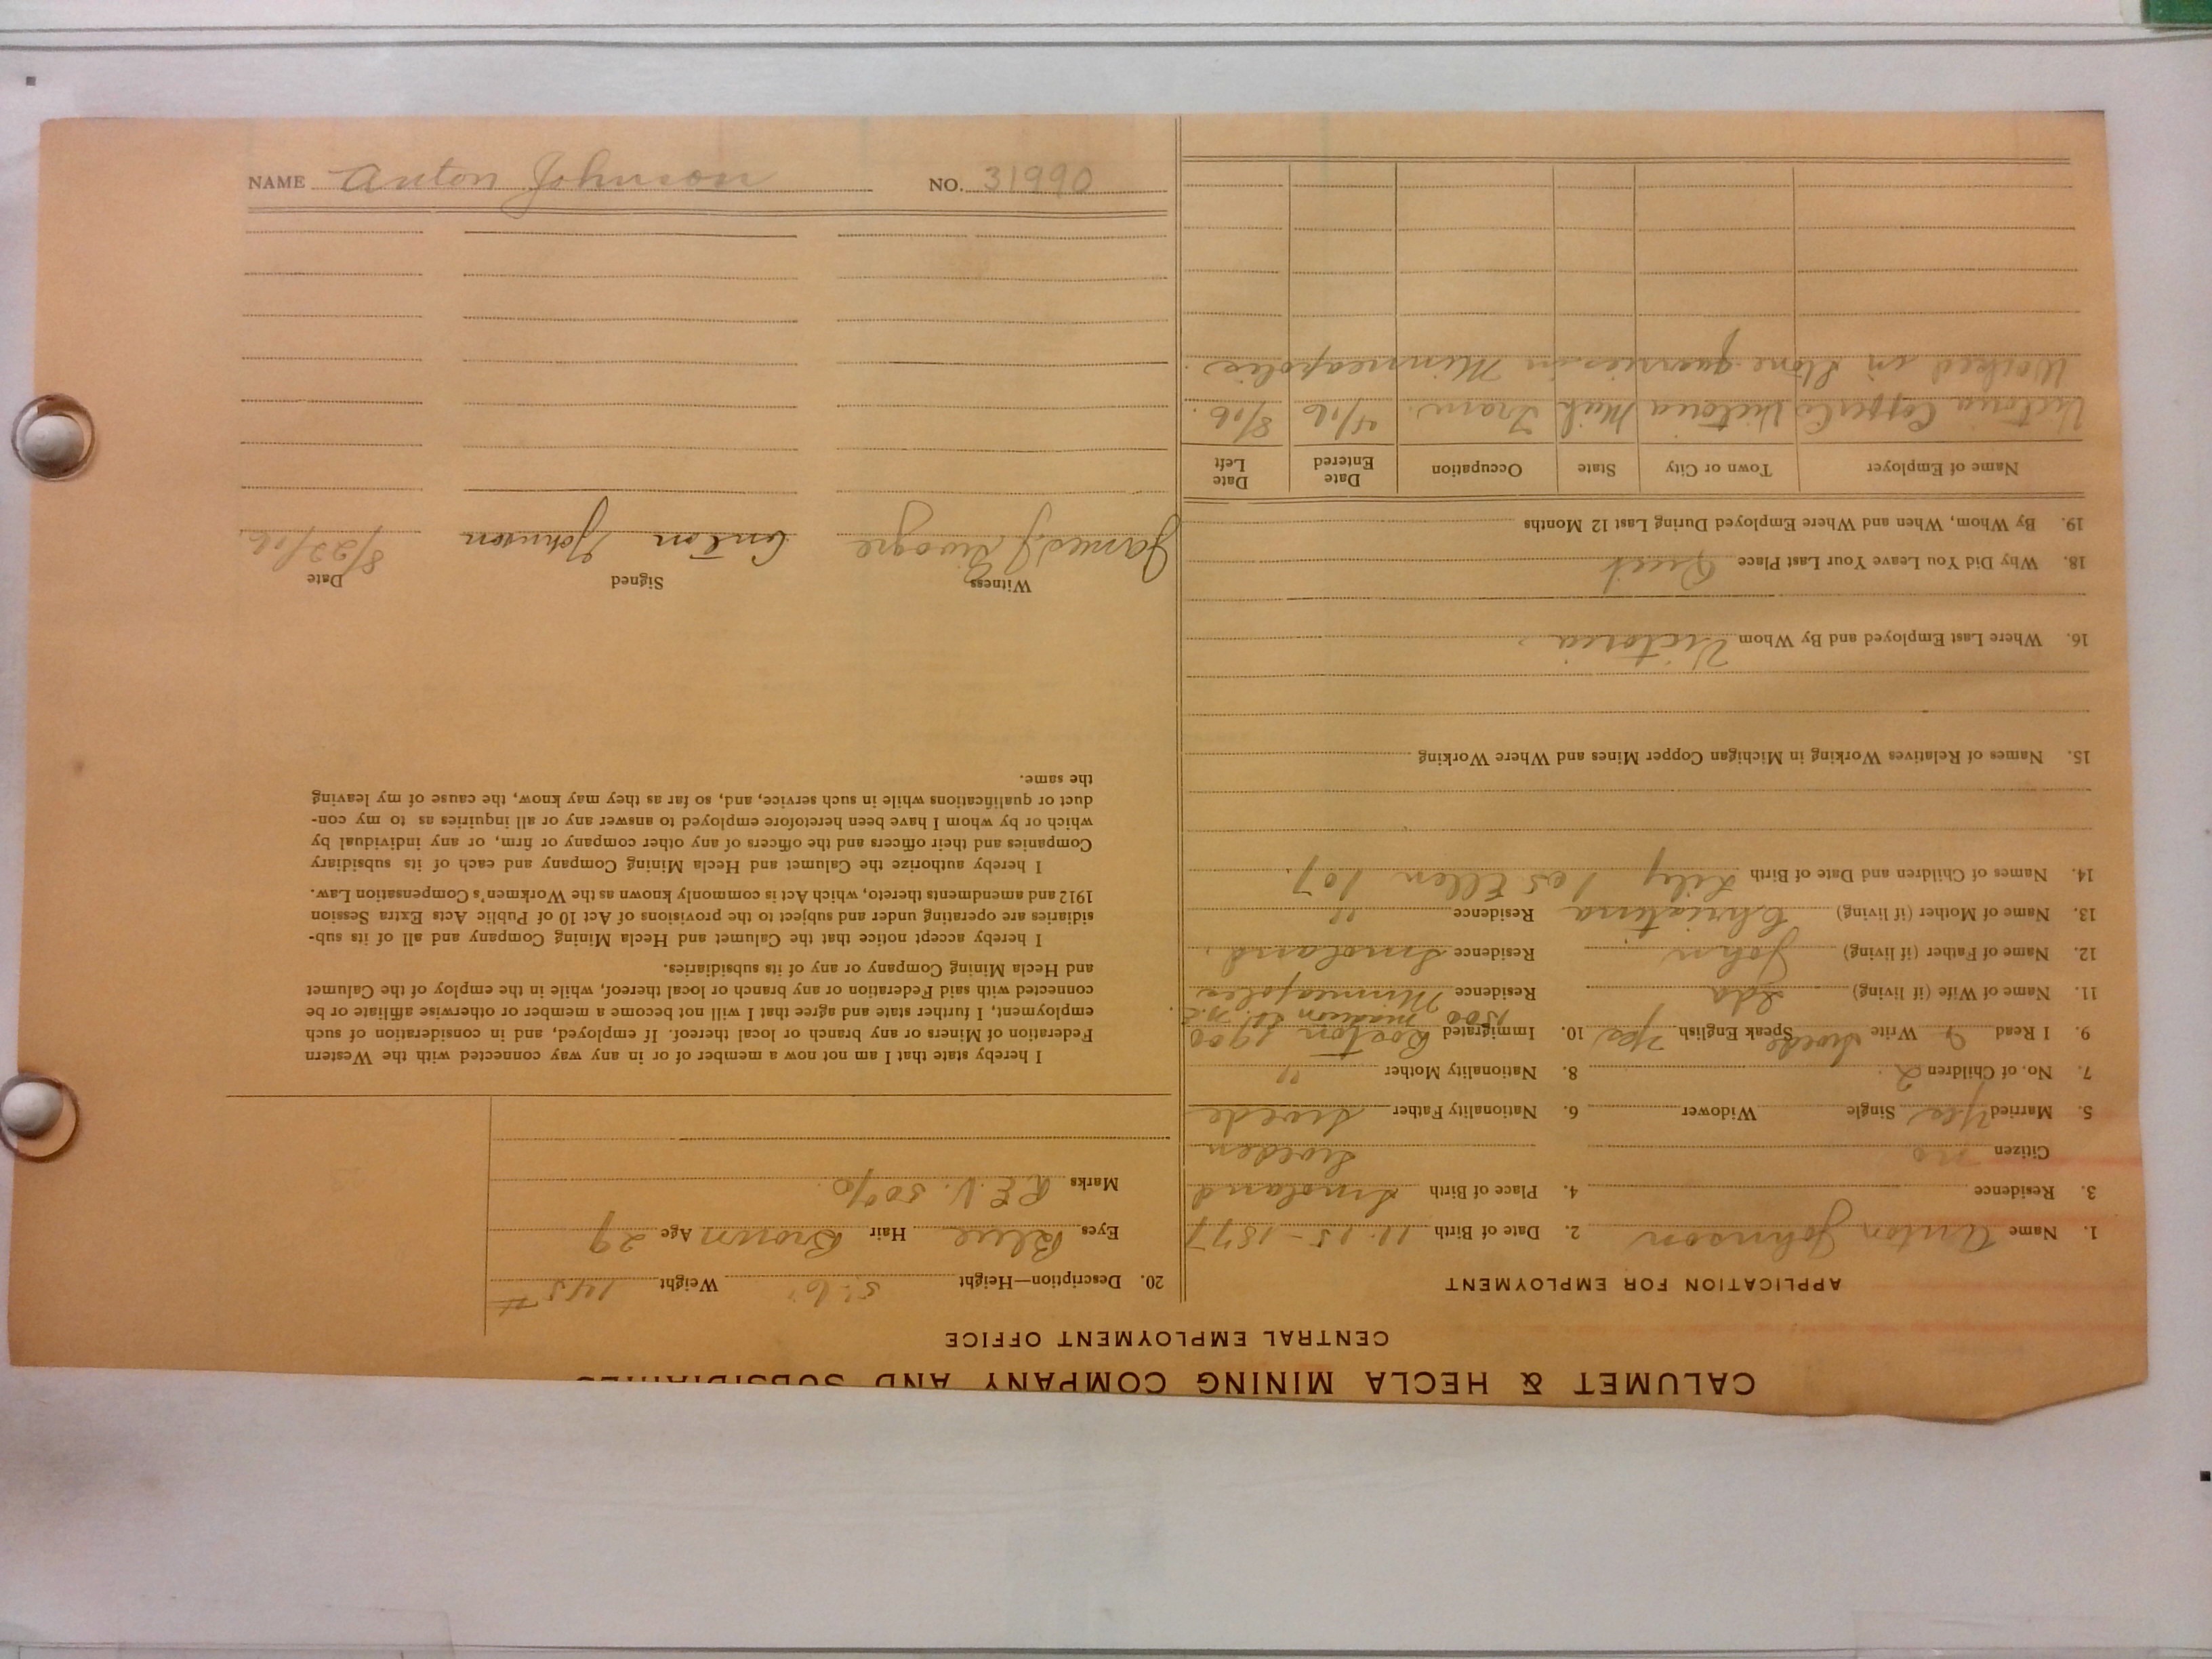 CALUMET & HECLA MINING COMPANY AND SUBSIDIARIES
CENTRAL EMPLOYMENT OFFICE
APPLICATION FOR EMPLOYMENT
1. Name Anton Johnson 2. Date of Birth 11-15-1877
3. Residence 4. Place of Birth Smoland
Citizen no Sweden
5. Married Yes Single Widower 6. Nationality Father Swede
7. No. of Children 2. 8. Nationality Mother "
9. I Read & Write Swede Speak English Yes 10. Immigrated Boston 1900
1300 Madison St. N.E.
11. Name of Wife (if living) Ida Residence Minneapolis
12. Name of Father (if living) John Residence Smoland.
13. Name of Mother (if living) Christina Residence "
14. Names of Children and Date of Birth Lily 1 05 Ellen 1 07.
15. Names of Relatives Working in Michigan Copper Mines and Where Working
16. Where Last Employed and By Whom Victoria.
18. Why Did You Leave Your Last Place Quit
19. By Whom, When and Where Employed During Last 12 Months
Name of Employer Town or City State Occupation Date Entered Date Left
Victoria Copper Co Victoria Mich Tram. 8/16.
Worked in Stone quarries in Minneapolis.
20. Description—Height 5' 6" Weight 145 #
Eyes Blue Hair Brown Age 29
Marks R.E.V. 50%.
I hereby state that I am not now a member of or in any way connected with the Western
Federation of Miners or any branch or local thereof. If employed, and in consideration of such
employment, I further state and agree that I will not become a member or otherwise affiliate or be
connected with said Federation or any branch or local thereof, while in the employ of the Calumet
and Hecla Mining Company or any of its subsidiaries.
I hereby accept notice that the Calumet and Hecla Mining Company and all of its sub-
sidiaries are operating under and subject to the provisions of Act 10 of Public Acts Extra Session
1912 and amendments thereto, which Act is commonly known as the Workmen's Compensation Law.
I hereby authorize the Calumet and Hecla Mining Company and each of its subsidiary
Companies and their officers and the officers of any other company or firm, or any individual by
which or by whom I have been heretofore employed to answer any or all inquiries as to my con-
duct or qualifications while in such service, and, so far as they may know, the cause of my leaving
the same.
Witness Signed Date
James J. Anton Johnson 8/22/16.
NAME Anton Johnson NO. 31990